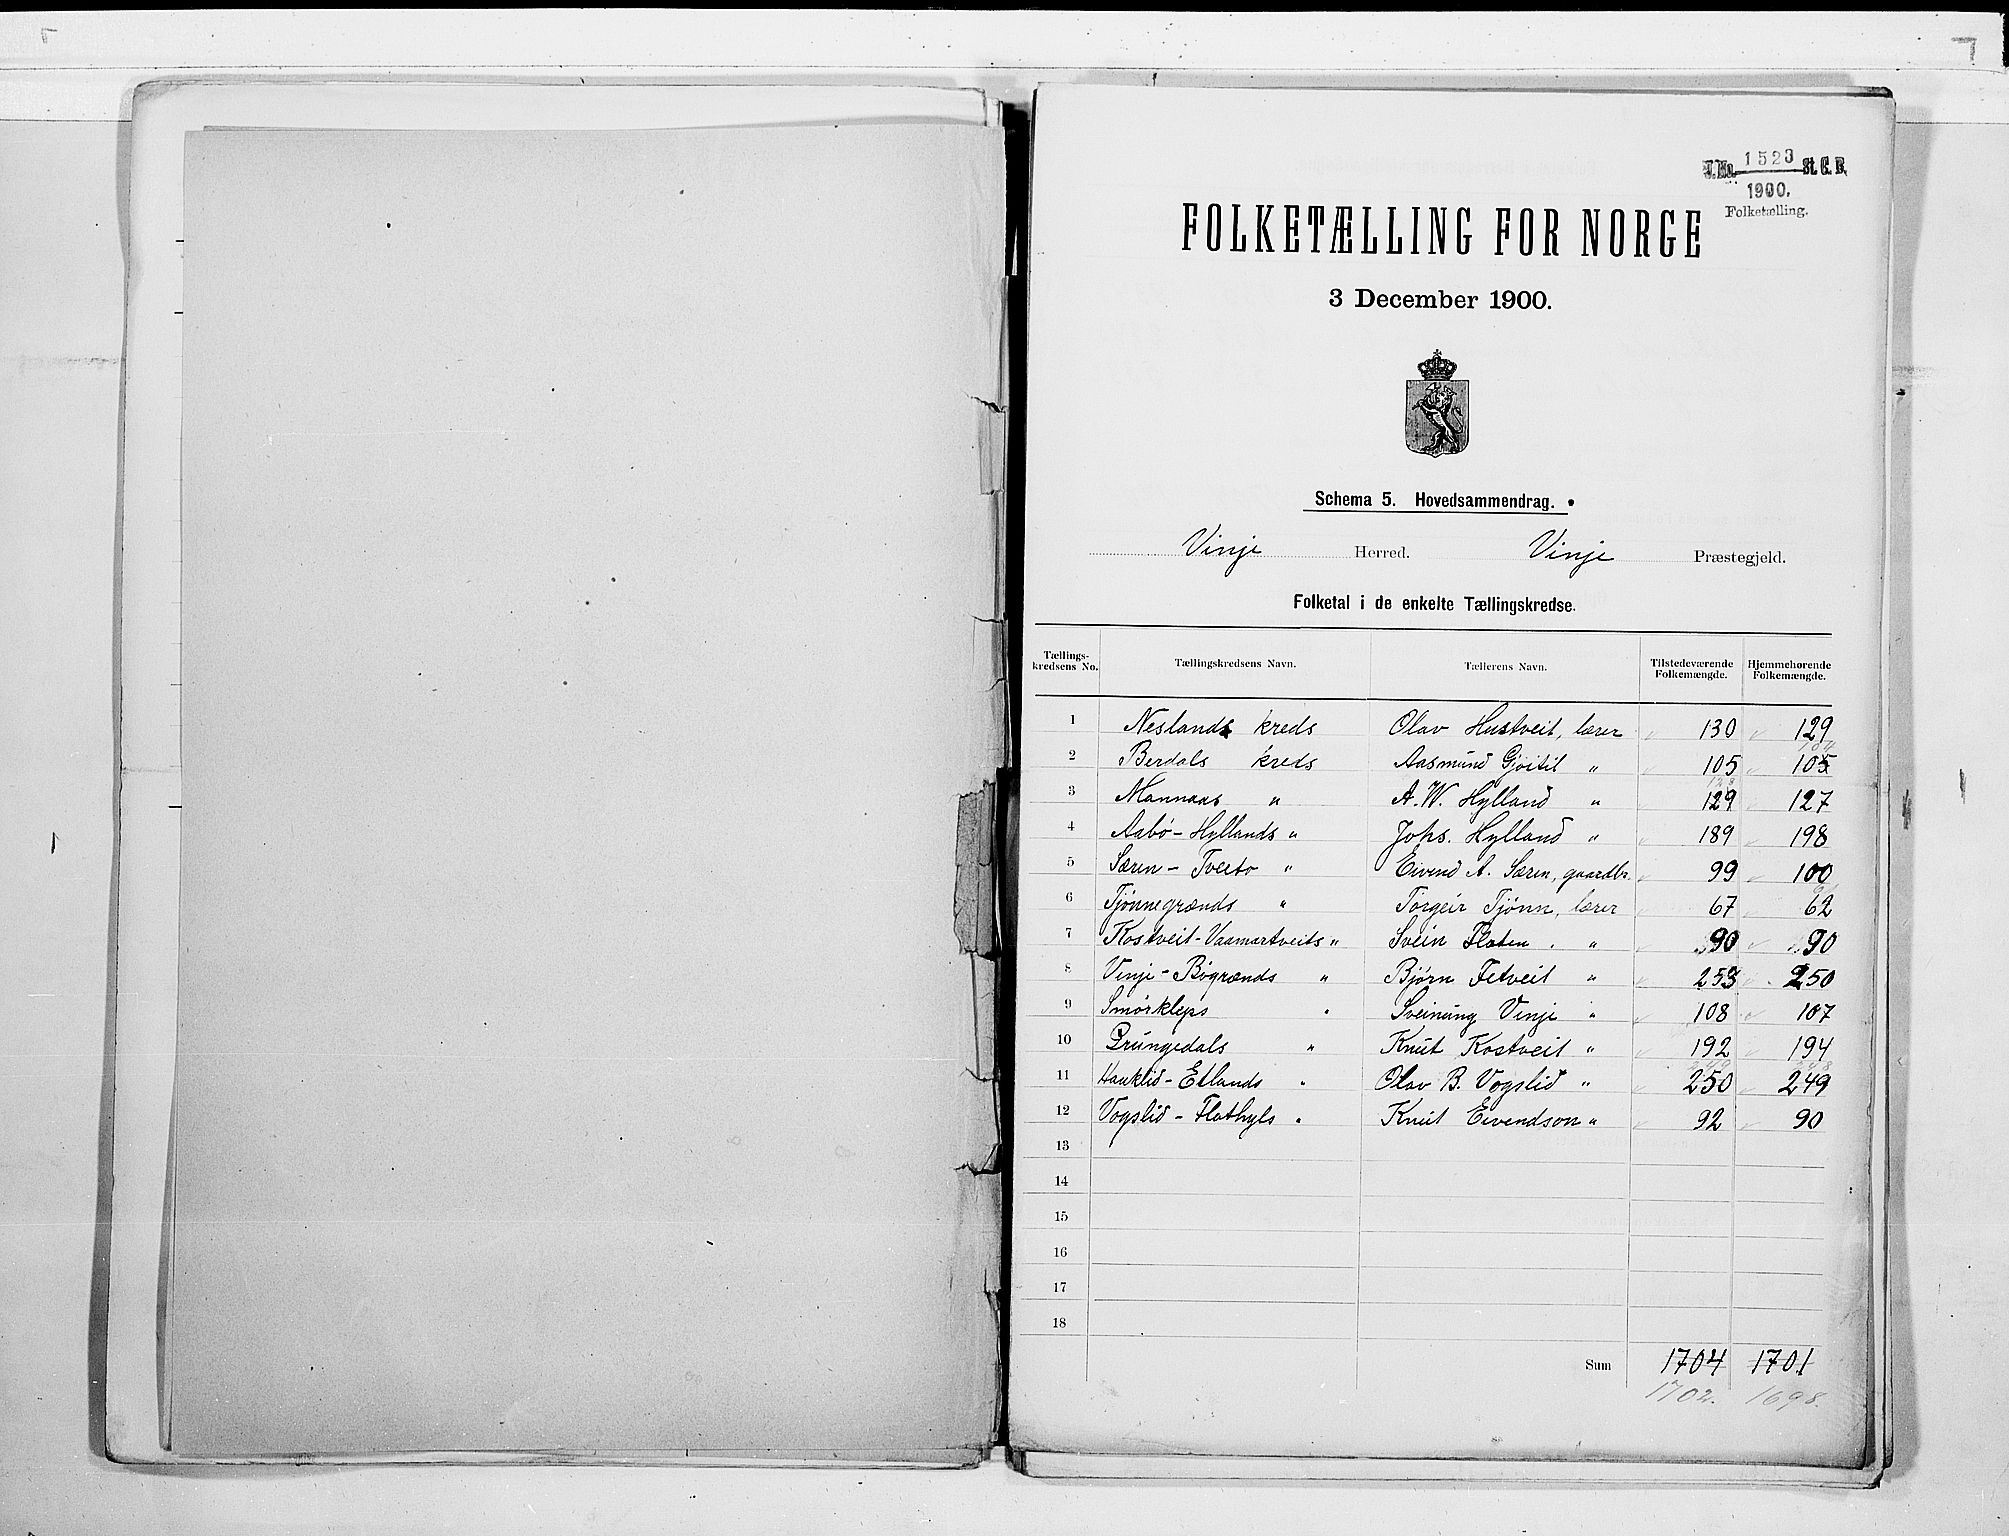 J.No. 1523 St. C. B.
1900.
Folketælling.
FOLKETÆLLING FOR NORGE
3 December 1900.
Schema 5. Hovedsammendrag.
Vinje Herred. Vinje Præstegjeld.
Folketal i de enkelte Tællingskredse.
Tællings-
kredsens No. Tællingskredsens Navn. Tællerens Navn. Tilstedeværende Hjemmehørende
Folkemængde. Folkemængde.
1 Neslands kreds Olav Hustveit, lærer 130 129
2 Berdals kreds Aasmund Gjøitil " 105 105
3 Mannaas " A. W. Hylland " 129 127
4 Aabø-Hyllands " Johs. Hylland " 189 198
5 Særen - Tveito " Eivend A. Særen, gaardbr. 99 100
6 Tjønnegrænds " Torgeir Tjønn, lærer 67 62
7 Kostveit-Vaamartveits " Svein Flaten . " 90 90
8 Vinje - Bøgrænds " Bjørn Fetveit " 253 250
9 Smørkleps " Sveinung Vinje " 108 107
10 Grungedals " Knut Kostveit " 192 194
11 Hauklid - Edlands " Olav B. Vogslid " 250 249
12 Vogslid - Flathyls " Knut Eivendson " 92 90
13
14
15
16
17
18
Sum 1704 1701
1702. 1698.